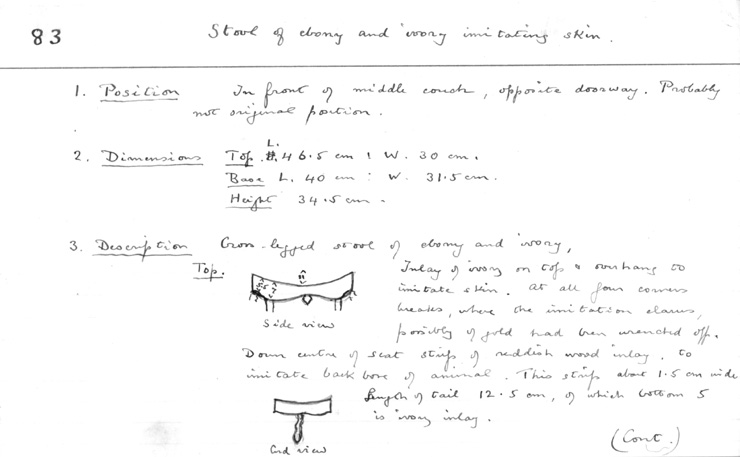 83
Stool of ebony and ivory imitating skin.
1. Position In front of middle couch, opposite doorway. Probably
not original position.
2. Dimensions Top. L. 46.5 cm : W. 30 cm.
Base L. 40 cm : W. 31.5 cm.
Height 34.5 cm.
3. Description Cross-legged stool of ebony and ivory,
Top.
Inlay of ivory on top & overhang to
imitate skin. At all four corners
breaks, where the imitation claws,
possibly of gold had been wrenched off.
Side view
Down centre of seat strip of reddish wood inlay, to
imitate back bone of animal. This strip about 1.5 cm wide
Length of tail 12.5 cm, of which bottom 5
is ivory inlay.
End view
(Cont.)